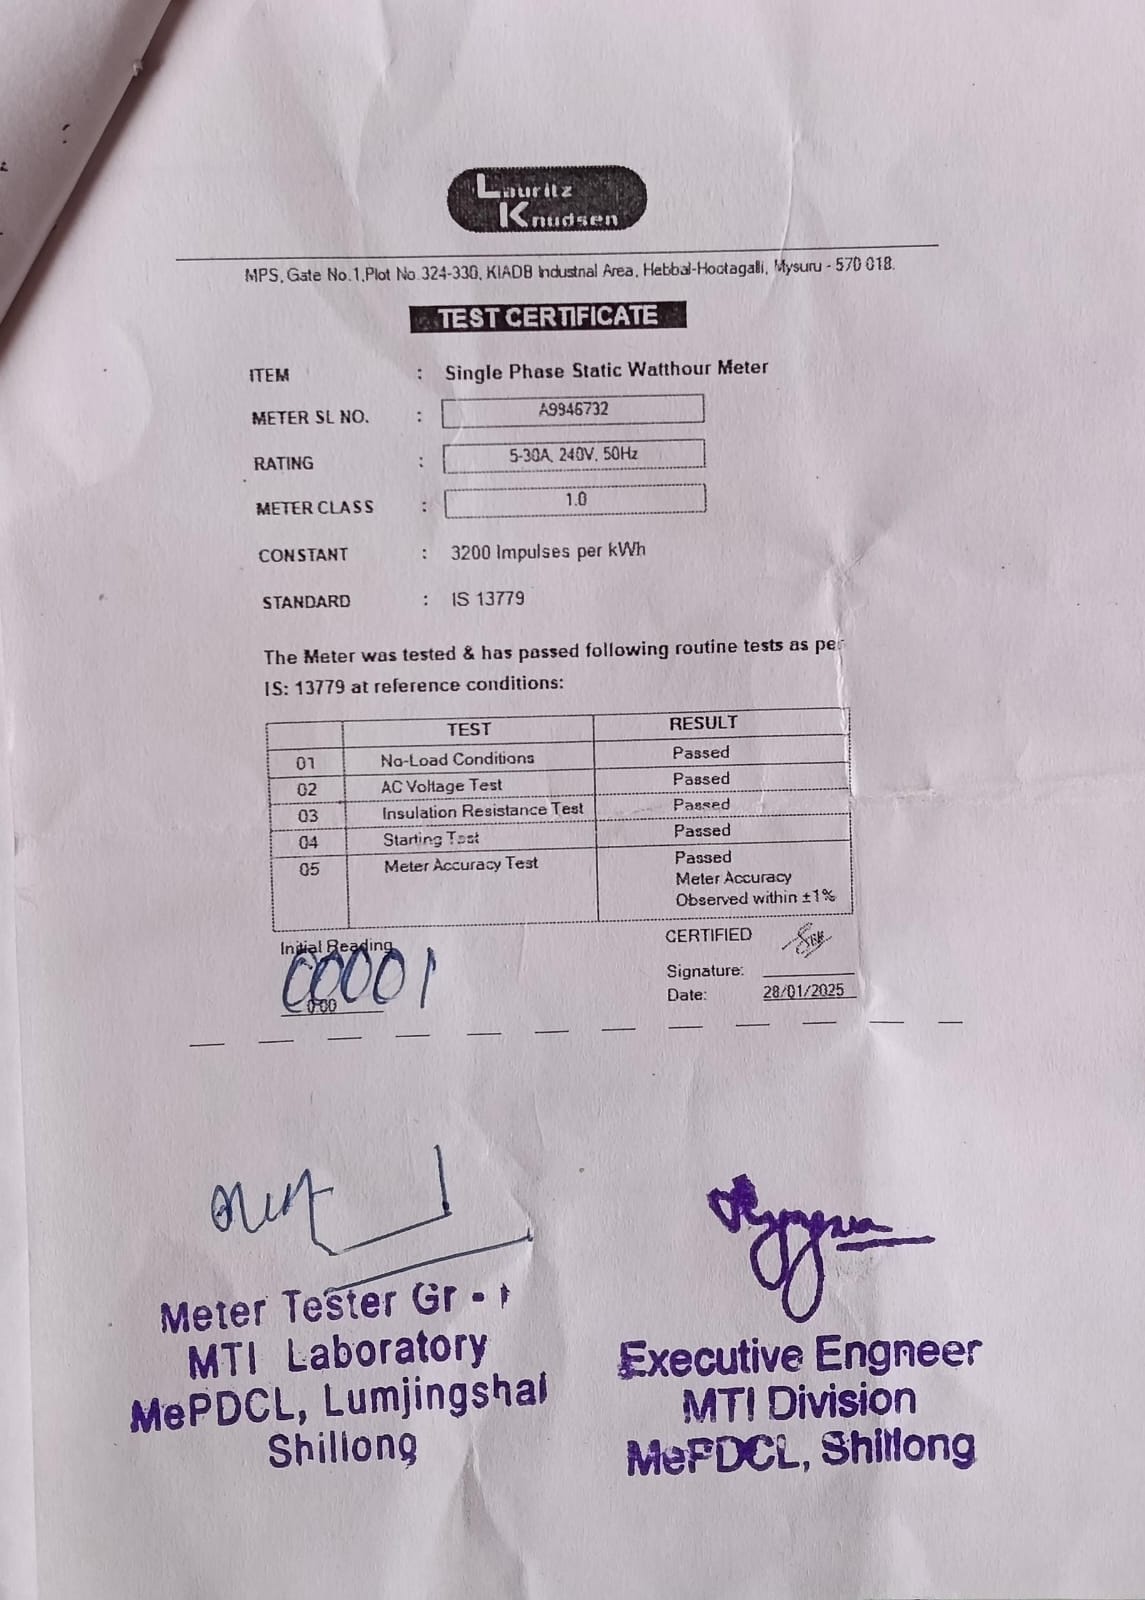 Lauritz
Knudsen
MPS, Gate No.1,Plot No.324-330, KIADB Industrial Area, Hebbal-Hootagalli, Mysuru - 570 018.
TEST CERTIFICATE
ITEM : Single Phase Static Watthour Meter
METER SL NO. : A9946732
RATING : 5-30A, 240V, 50Hz
METER CLASS : 1.0
CONSTANT : 3200 Impulses per kWh
STANDARD : IS 13779
The Meter was tested & has passed following routine tests as per
IS: 13779 at reference conditions:
TEST RESULT
01 No-Load Conditions Passed
02 AC Voltage Test Passed
03 Insulation Resistance Test Passed
04 Starting Test Passed
05 Meter Accuracy Test Passed
Meter Accuracy
Observed within ±1%
Initial Reading
00001
0.00
CERTIFIED
Signature:
Date: 28/01/2025
Meter Tester Gr - I
MTI Laboratory
MePDCL, Lumjingshai
Shillong
Executive Engneer
MTI Division
MePDCL, Shillong